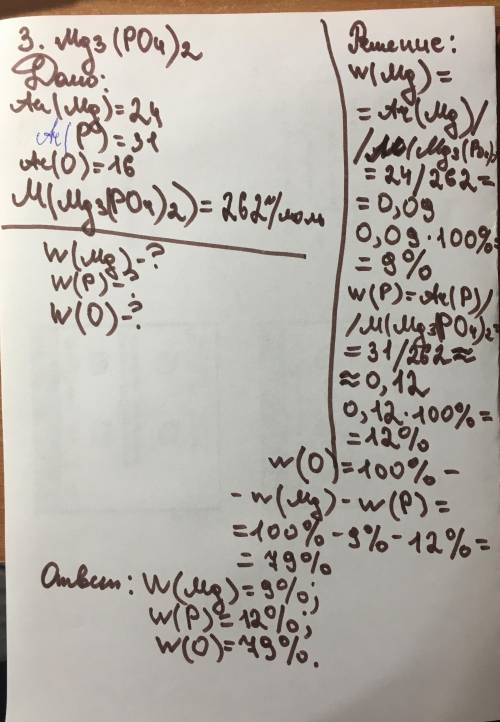 3. Mg3(PO4)2
Дано:
Ar(Mg)=24
Ar(P)=31
Ar(O)=16
M(Mg3(PO4)2)=262г/моль
W(Mg)-?
W(P)-?
W(O)-?
Решение:
W(Mg)=
=Ar(Mg)/
/M(Mg3(PO4)2
=24/262=
=0,09
0,09·100%=
=9%
W(P)=Ar(P)/
/M(Mg3(PO4)2=
=31/262≈
≈0,12
0,12·100%=
=12%
W(O)=100%-
-W(Mg)-W(P)=
=100%-9%-12%=
=79%
Ответ: W(Mg)=9%;
W(P)=12%;
W(O)=79%.